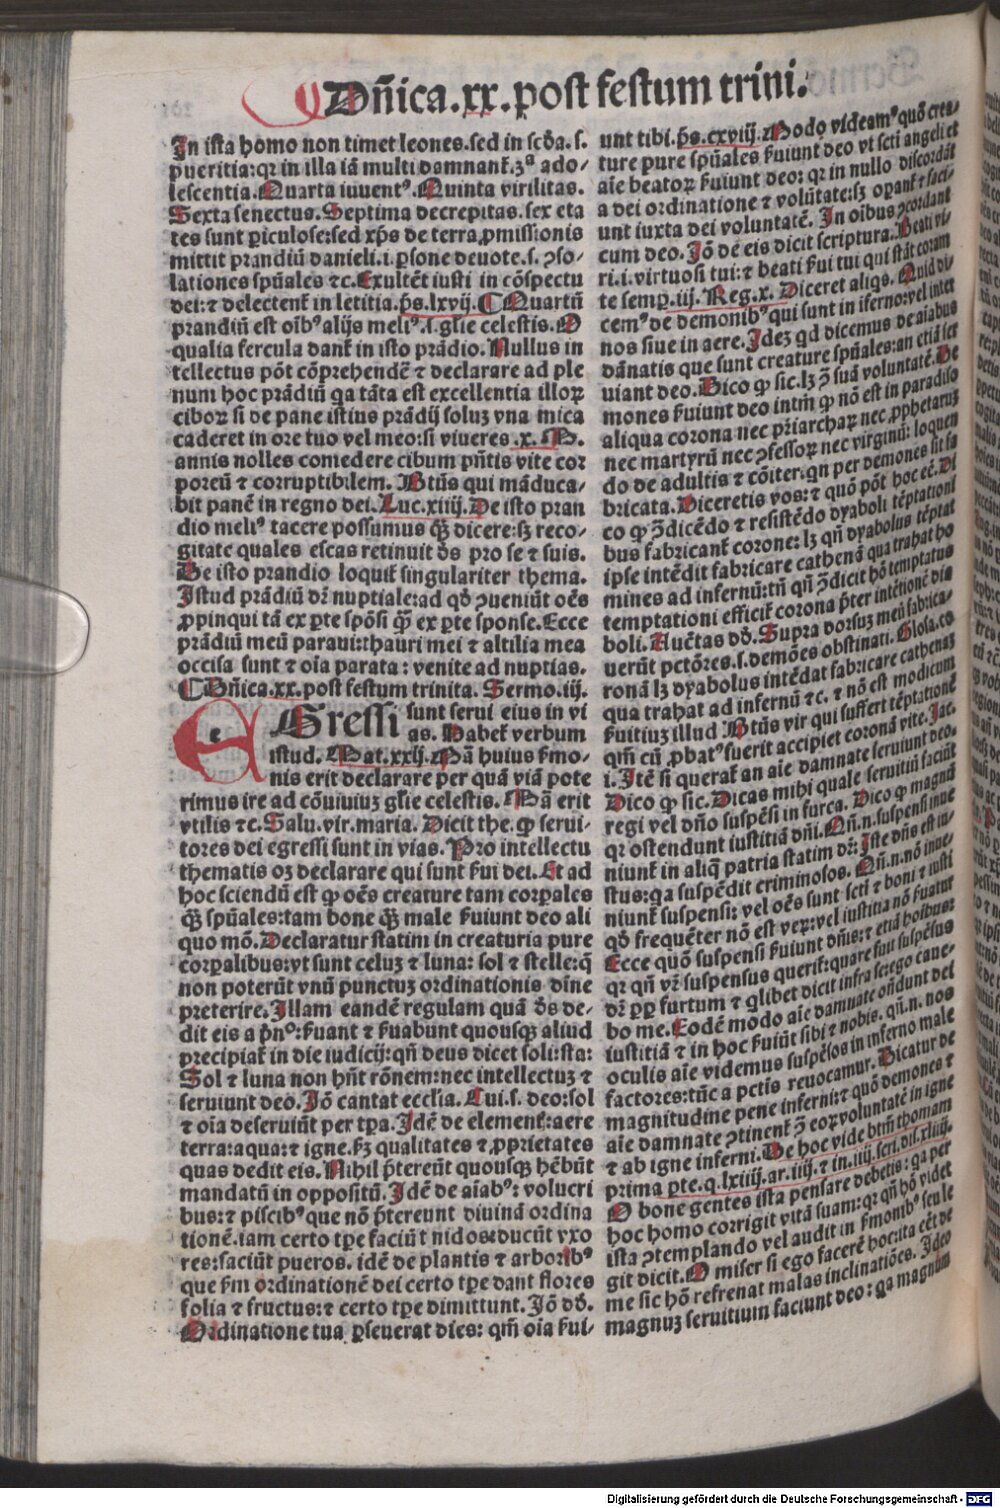 Dñica.xx.post festum trini.
In ista homo non timet leones.sed in scďa.s.
pueritia:qr in illa iã multi damnant̃.3ª ado-
lescentia.Quarta iuuentꝰ.Quinta virilitas.
Sexta senectus.Septima decrepitas.sex eta
tes sunt ꝑiculose:sed xp̃s de terra ꝓmissionis
mittit prandiũ danieli.i.ꝑsone deuote.s.ꝯso-
lationes spũales ⁊c.Exultẽt iusti in cõspectu
dei:⁊ delectent̃ in letitia.p̃s.lxvij. ¶ Quartũ
prandiũ est oĩbꝰ alijs meliꝰ.s.gl̃ie celestis.O
qualia fercula dant̃ in isto prãdio.Nullus in
tellectus põt cõprehendẽ ⁊ declarare ad ple
num hoc prãdiũ qa tãta est excellentia illoꝝ
ciboꝝ si de pane istius prãdij soluꝫ vna mica
caderet in ore tuo vel meo:si viueres.x.M.
annis nolles comedere cibum pñtis vite cor
poreũ ⁊ corruptibilem. Btũs qui mãduca-
bit panẽ in regno dei.Luc.xiiij.De isto pran
dio meliꝰ tacere possumus q̃ꝫ dicere:sꝫ reco-
gitate quales escas retinuit ďs pro se ⁊ suis.
De isto prandio loquit̃ singulariter thema.
Istud prãdiũ dr̃ nuptiale:ad qď ꝯueniũt oẽs
ꝓpinqui tã ex ꝑte spõsi q̃ꝫ ex ꝑte sponse.Ecce
prãdiũ meũ paraui:thauri mei ⁊ altilia mea
occisa sunt ⁊ oĩa parata: venite ad nuptias.
¶ Dñica.xx.post festum trinita. Sermo.iij.
EGressi sunt serui eius in vi
as. Habet̃ verbum
istud. Mat.xxij.Mã huius f̃mo-
nis erit declarare per quã viã pote
rimus ire ad cõuiuiuꝫ gl̃ie celestis. Mã erit
vtilis ⁊c.Salu.vir.maria. Dicit the. ꝙ serui-
tores dei egressi sunt in vias. Pro intellectu
thematis oꝫ declarare qui sunt f̃ui dei. Et ad
hoc sciendũ est ꝙ oẽs creature tam corꝑales
q̃ꝫ spũales:tam bone q̃ꝫ male f̃uiunt deo ali
quo mõ.Declaratur statim in creaturis pure
corꝑalibus:vt sunt celuꝫ ⁊ luna: sol ⁊ stelle:q̃
non poterũt vnũ punctuꝫ ordinationis diue
preterire.Illam eandẽ regulam quã ďs de-
dit eis a pñº:f̃uant ⁊ f̃uabunt quousqꝫ aliud
p̃cipiat̃ in die iudicij:qñ deus dicet soli:sta:
Sol ⁊ luna non hñt rõnem:nec intellectuꝫ ⁊
seruiunt deo.Iõ cantat eccl̃ia. Cui.s.deo:sol
⁊ oĩa deseruiũt per tp̃a.Idẽ de element̃:aere
terra:aqua:⁊ igne.f̃ꝫ qualitates ⁊ ꝓprietates
quas dedit eis.Nihil p̃tereũt quousqꝫ hẽbũt
mandatũ in oppositũ. Idẽ de aĩabꝰ: volucri
bus:⁊ piscibꝰ que nõ p̃tereunt diuinã ordina
tionẽ.iam certo tp̃e faciũt nidos:ducũt vxo
res:faciũt pueros. idẽ de plantis ⁊ arboribꝰ
que f̃m ordinationẽ dei certo tp̃e dant flores
folia ⁊ fructus:⁊ certo tp̃e dimittunt. Iõ dď.
Ordinatione tua ꝑseuerat dies: qm̃ oĩa f̃ui-
unt tibi.p̃s.cxviij.Modo videamꝰ quõ crea-
ture pure spũales f̃uiunt deo vt scti angeli et
aĩe beatoꝝ f̃uiunt deo: qr in nullo discordãt
a dei ordinatione ⁊ volũtate:sꝫ oꝑant̃ ⁊ faci-
unt iuxta dei voluntatẽ. In oĩbus ꝯcordant
cum deo. Iõ de eis dicit scriptura.Beati vi-
ri.i.virtuosi tui:⁊ beati f̃ui tui qui stãt coram
te semꝑ.iij. Reg.x. Diceret aliqs. Quid di-
cemꝰ de demonibꝰ qui sunt in iferno:vel inter
nos siue in aere. Ideꝫ qd dicemus de aĩabus
dãnatis que sunt creature spũales:an etiã ser
uiant deo.Dico ꝙ sic.lꝫ ꝯ̃ suã voluntatẽ.De
mones f̃uiunt deo intm̃ ꝙ nõ est in paradiso
aliqua corona nec pr̃iarchaꝝ nec ꝓphetaruꝫ
nec martyrũ nec ꝯfessoꝝ nec virginũ: loquen
do de adultis ⁊ cõiter:qn per demones sit fa
bricata.Diceretis vos:⁊ quõ põt hoc eẽ.Di
co ꝙ ꝯ̃dicẽdo ⁊ resistẽdo dyaboli tẽptationi
bus fabricant̃ corone: lꝫ qñ dyabolus tẽptat
ipse intẽdit fabricare cathenã qua trahat ho
mines ad infernũ:tñ qñ ꝯ̃dicit hõ temptatus
temptationi efficit̃ corona p̃ter intẽtionẽ dia
boli. Auctas dď.Supra dorsuꝫ meũ fabrica-
uerũt pctõres.s.demões obstinati. Glosa.co
ronã lꝫ dyabolus intẽdat fabricare cathenaꝫ
qua trahat ad infernũ ⁊c. ⁊ nõ est modicum
f̃uitiuꝫ illud Btũs vir qui suffert tẽptationẽ
qm̃ cũ ꝓbatꝰ fuerit accipiet coronã vite.Iac.
i.Itẽ si querat̃ an aĩe damnate seruiunt deo.
Dico ꝙ sic.Dicas mihi quale seruitiũ faciũt
regi vel dño suspẽsi in furca. Dico ꝙ magnũ
qr ostendunt iustitiã dñi.Qñ.n.suspensi inue
niunt̃ in aliq̃ patria statim dr̃: Iste dñs est iu-
stus:qa suspẽdit criminosos. Qñ.n.nõ inue-
niunt̃ suspensi: vel oẽs sunt scti ⁊ boni ⁊ iusti
qď frequẽter nõ est veꝝ:vel iustitia nõ f̃uatur
Ecce quõ suspensi f̃uiunt dñis:⁊ etiã hoĩbus:
qr qñ vr̃ suspensus querit̃:quare fuit suspẽsus
dr̃ ꝓꝑ furtum ⁊ q̃libet dicit infra se:ego caue-
bo me.Eodẽ modo aĩe damnate oñdunt dei
iustitiã ⁊ in hoc f̃uiũt sibi ⁊ nobis. qñ.n. nos
oculis aĩe videmus suspẽsos in inferno male
factores:tũc a pctis reuocamur. Dicatur de
magnitudine pene inferni:⁊ quõ demones ⁊
aĩe damnate ꝯtinent̃ ꝯ̃ eoꝝ voluntatẽ in igne
⁊ ab igne inferni.De hoc vide btm̃ thomam
prima pte.q.lxiiij.ar.iiij.⁊ in.iiij.scri.dis.xliiij.
O bone gentes ista pensare debetis: qa per
hoc homo corrigit vitã suam: qr qñ hõ videt
ista ꝯtemplando vel audit in f̃monibꝰ seu le
git dicit.O miser si ego facerẽ hoc:ita eẽt de
me sic hõ refrenat malas inclinatiões. Ideo
magnuꝫ seruitium faciunt deo: qa magnum
Digitalisierung gefördert durch die Deutsche Forschungsgemeinschaft - DFG